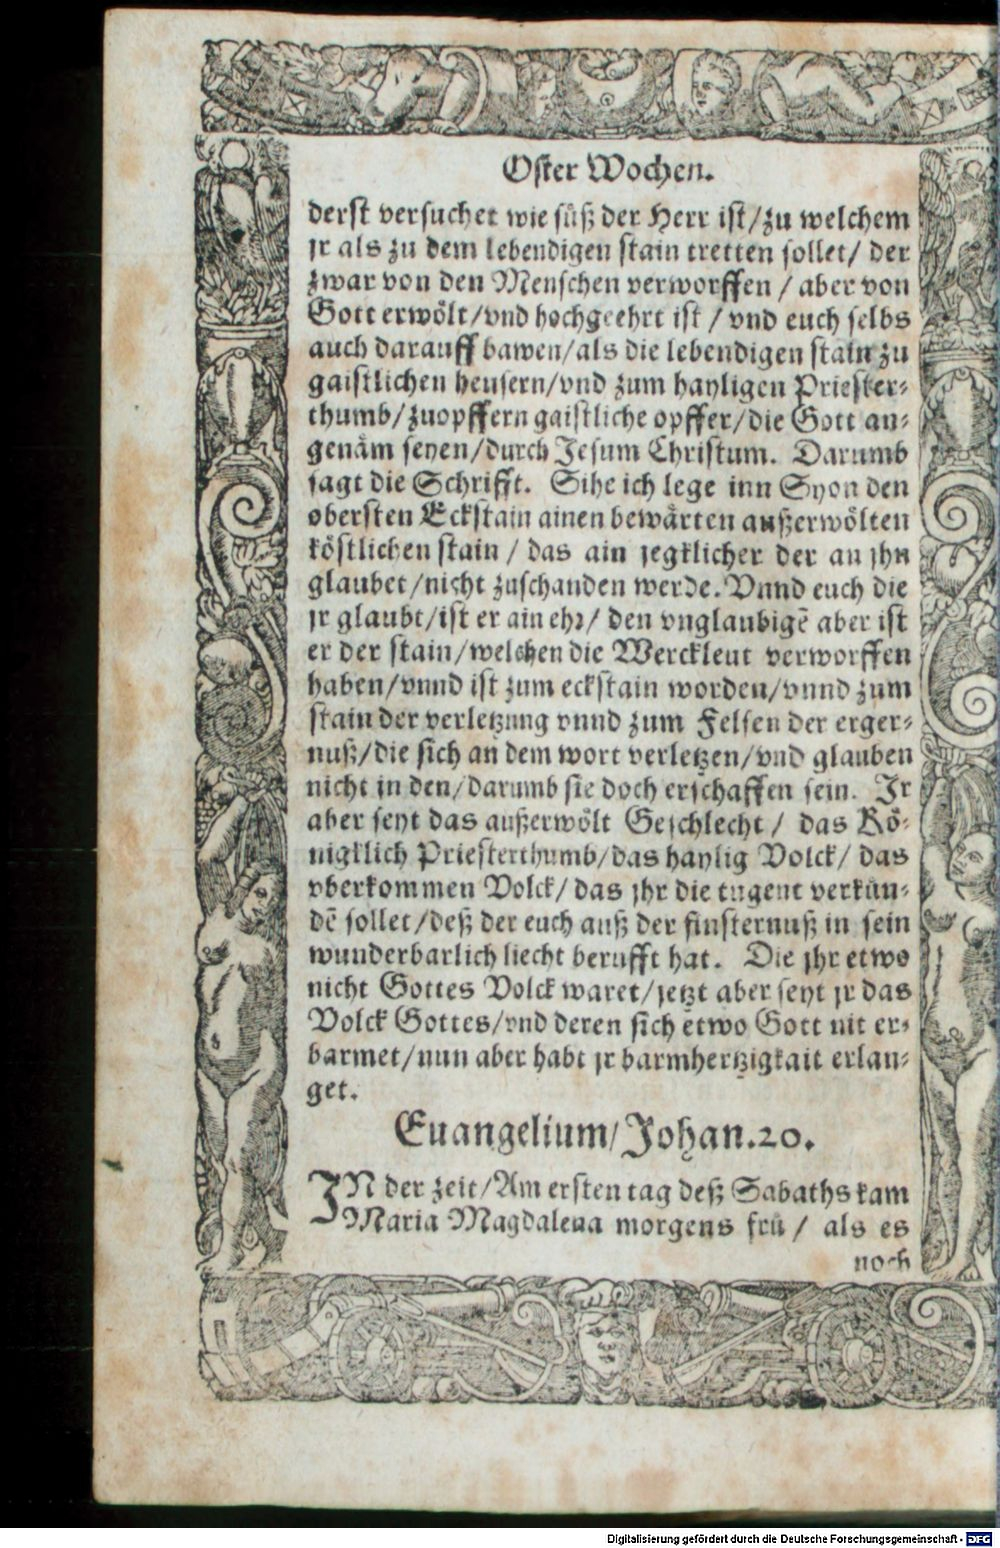 Oster Wochen.
derst versuchet wie süß der Herr ist/zu welchem
jr als zu dem lebendigen stain tretten sollet/ der
zwar von den Menschen verworffen / aber von
Gott erwölt/vnd hochgeehrt ist / vnd euch selbs
auch darauff bawen/als die lebendigen stain zu
gaistlichen heusern/vnd zum hayligen Priester-
thumb/zuopffern gaistliche opffer/die Gott an-
genäm seyen/durch Jesum Christum. Darumb
sagt die Schrifft. Sihe ich lege inn Syon den
obersten Eckstain ainen bewärten außerwölten
köstlichen stain / das ain jegklicher der an jhn
glaubet/nicht zuschanden werde. Vnnd euch die
jr glaubt/ist er ain ehr/ den vnglaubigẽ aber ist
er der stain/welchen die Werckleut verworffen
haben/vnnd ist zum eckstain worden/vnnd zum
stain der verletzung vnnd zum Felsen der erger-
nuß/die sich an dem wort verletzen/vnd glauben
nicht in den/darumb sie doch erschaffen sein. Jr
aber seyt das außerwölt Geschlecht / das Kö-
nigklich Priesterthumb/das haylig Volck/ das
vberkommen Volck/ das jhr die tugent verkün-
dẽ sollet/deß der euch auß der finsternuß in sein
wunderbarlich liecht berufft hat. Die jhr etwo
nicht Gottes Volck waret/jetzt aber seyt jr das
Volck Gottes/vnd deren sich etwo Gott nit er-
barmet/nun aber habt jr barmhertzigkait erlan-
get.
Euangelium/Johan.20.
JN der zeit/Am ersten tag deß Sabaths kam
Maria Magdalena morgens frü / als es
noch
Digitalisierung gefördert durch die Deutsche Forschungsgemeinschaft - DFG